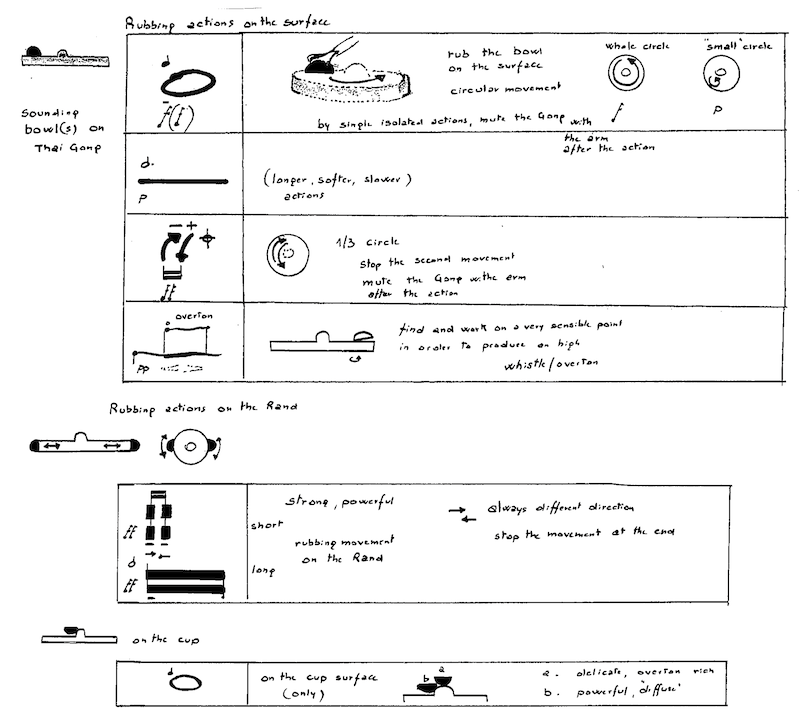 Rubbing actions on the surface
Sounding
bowl(s) on
Thai Gong
f(f)
rub the bowl
on the surface
circular movement
whole circle
"small" circle
f
p
by single isolated actions, mute the Gong with
the arm
after the action
p
(longer, softer, slower)
actions
- +
ff
1/3 circle
stop the second movement
mute the Gong with the arm
after the action
overton
pp
find and work on a very sensible point
in order to produce an high
whistle/overton
Rubbing actions on the Rand
ff
short
strong, powerful
rubbing movement
on the Rand
always different direction
stop the movement at the end
ff
long
on the cup
on the cup surface
(only)
a
b
a. delicate, overton rich
b. powerful, "diffuse"